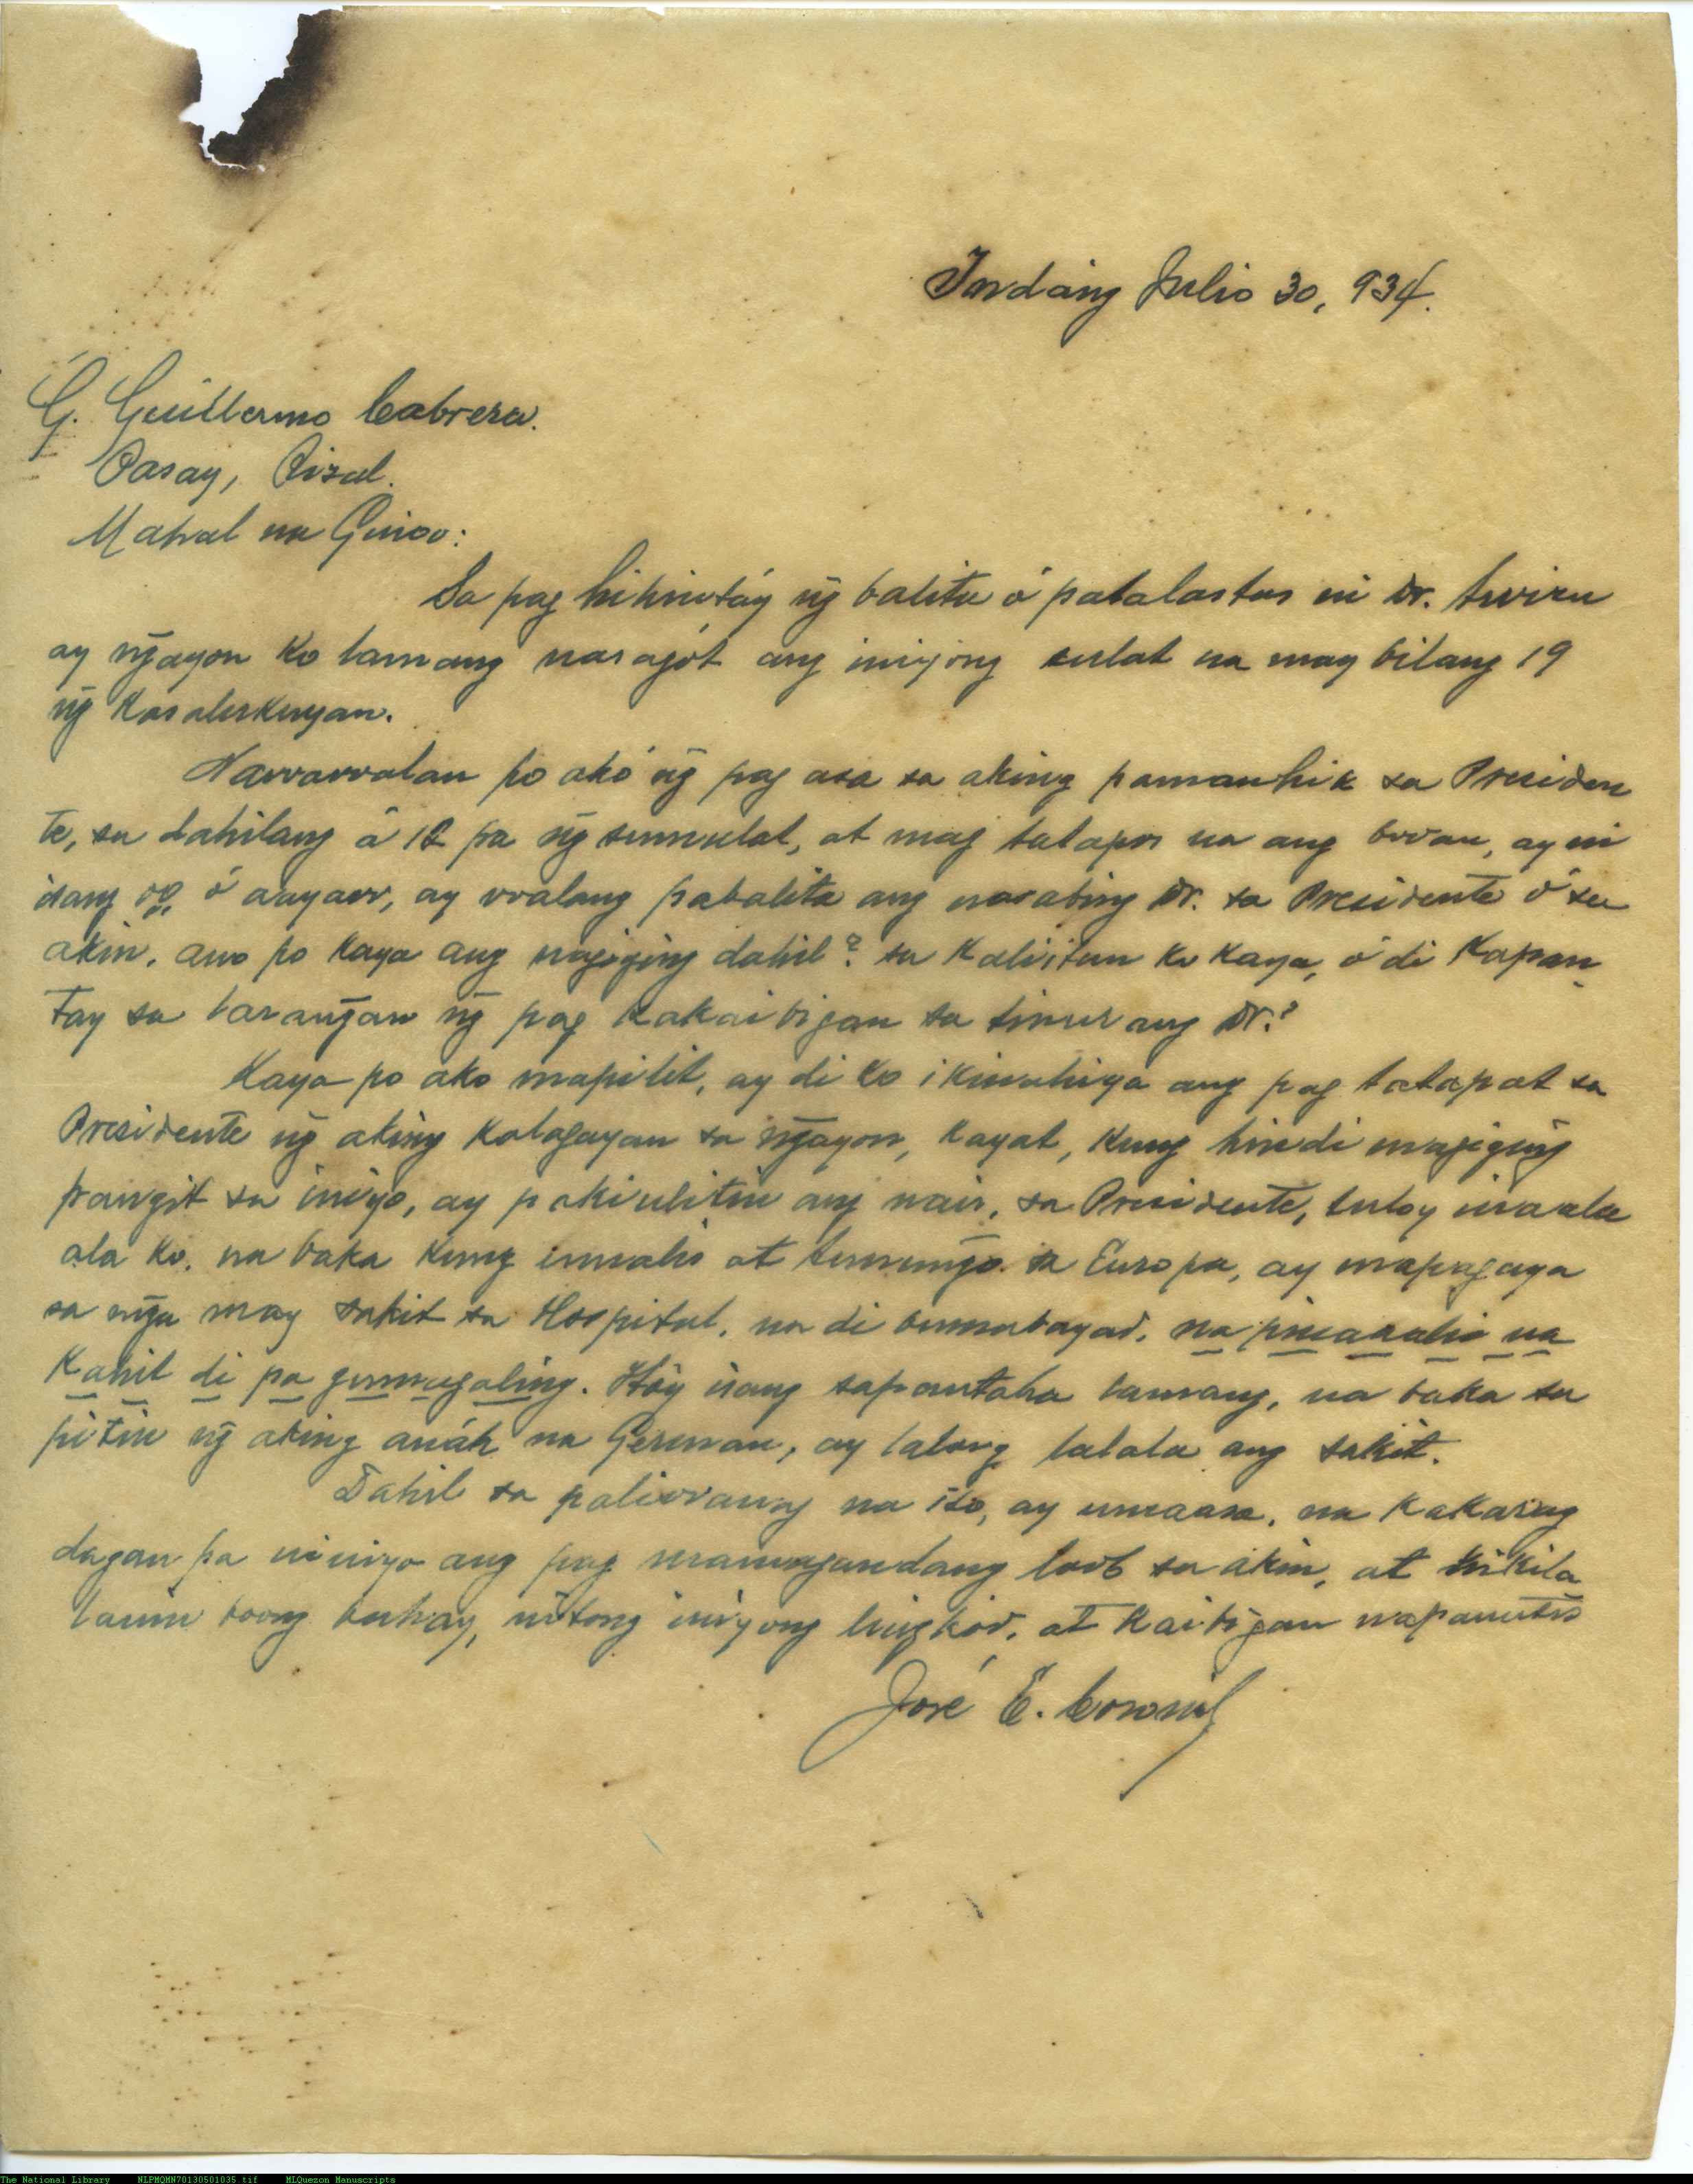 Indáng Julio 30, 934.
G. Guillermo Cabrera.
Pasay, Rizal.
Mahal na Guinoo:
Sa pag hihintáy ng̃ balita ó patalastas ni Dr.
ay ng̃ayon ko lamang nasagót ang iniyong sulat na may bilang 19
ng̃ kasalukuyan.
Nawawalan po akó ng̃ pag asa sa aking pamanhik sa Presiden
te, sa dahilang á 12 pa ng̃ sumulat, at mag tatapos na ang buan, ay ni
isang oo, ó aayaw, ay walang pabalita ang nasabing Dr. sa Presidente ó sa
akin, ano po kaya ang nagiging dahil? sa kaliitan ko kaya, ó di kapan
tay sa larang̃an ng̃ pag kakaibigan sa tinurang Dr.?
Kaya po ako mapilit, ay di ko ikinahiya ang pag tatapat sa
Presidente ng̃ aking kalagayan sa ng̃ayon, kayat, kung hindi magiging
pangit sa iniyo, ay pakiulitin ang nais, sa Presidente, tuloy inaala
ala ko, na baka kung umalis at tumung̃o sa Europa, ay mapagaya
sa mg̃a may sakit sa Hospital, na di bumabayad, na pinaaalis na
kahit di pa gumagaling. Itóy isang sapantaha lamang, na baka sa
pitin ng̃ aking anák na German, ay lalong lalala ang sakit.
Dahil sa paliwanag na ito, ay umaasa, na kakarag
dagan pa niniyo ang pag mamagandang loob sa akin, at kikila
lanin boong buhay, nitong iniyong lingkod, at kaibigan napauutos
José E. Coronel
The National Library NLPMQMN70130501035.tif MLQuezon Manuscripts